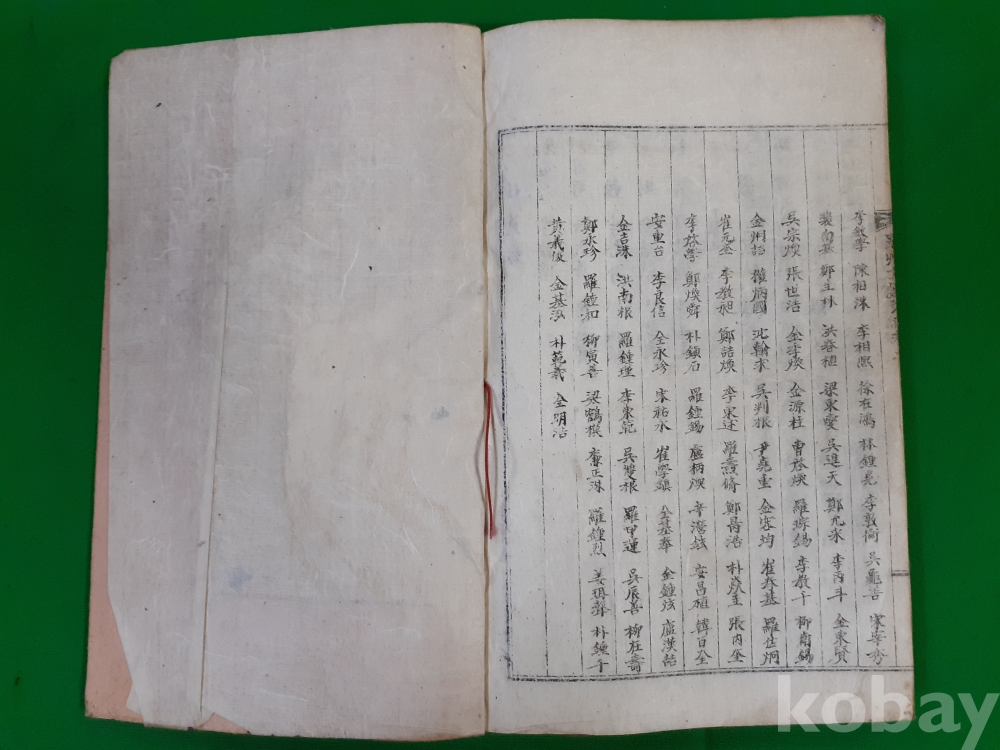 李敎學 陳相洙 李相熙 徐在鴻 林鍾晃 李敦衡 吳龜善 宋寧秀
裵向基 鄭圭林 洪春植 梁東燮 吳進天 鄭允永 李丙斗 金東賢
吳宗煥 張世浩 金李煥 金源柱 曹秉煥 羅濟錫 李敎千 柳甫錫
金炯詰 權炳國 沈翰求 吳判根 尹堯重 金容均 崔春基 羅佐炯
崔元奎 李敎昶 鄭喆煥 李東述 羅壽脩 鄭昌浩 朴燮圭 張內奎
李秉學 鄭煥舜 朴鎭石 羅鍾錫 盧柄煥 辛濟鉉 安昌植 韓日全
安重台 李良信 全永珍 宋祐永 崔學鎭 全基奉 金鍾炫 盧漢詰
金吉洙 洪南根 羅鍾瑾 李東範 吳雙根 羅甲運 吳辰善 柳在壽
鄭永珍 羅鍾和 柳寅善 梁鶴模 康正洙 羅鍾烈 姜璃聲 朴鍾千
黃義俊 金基泓 朴範羲 全明洁
kobay